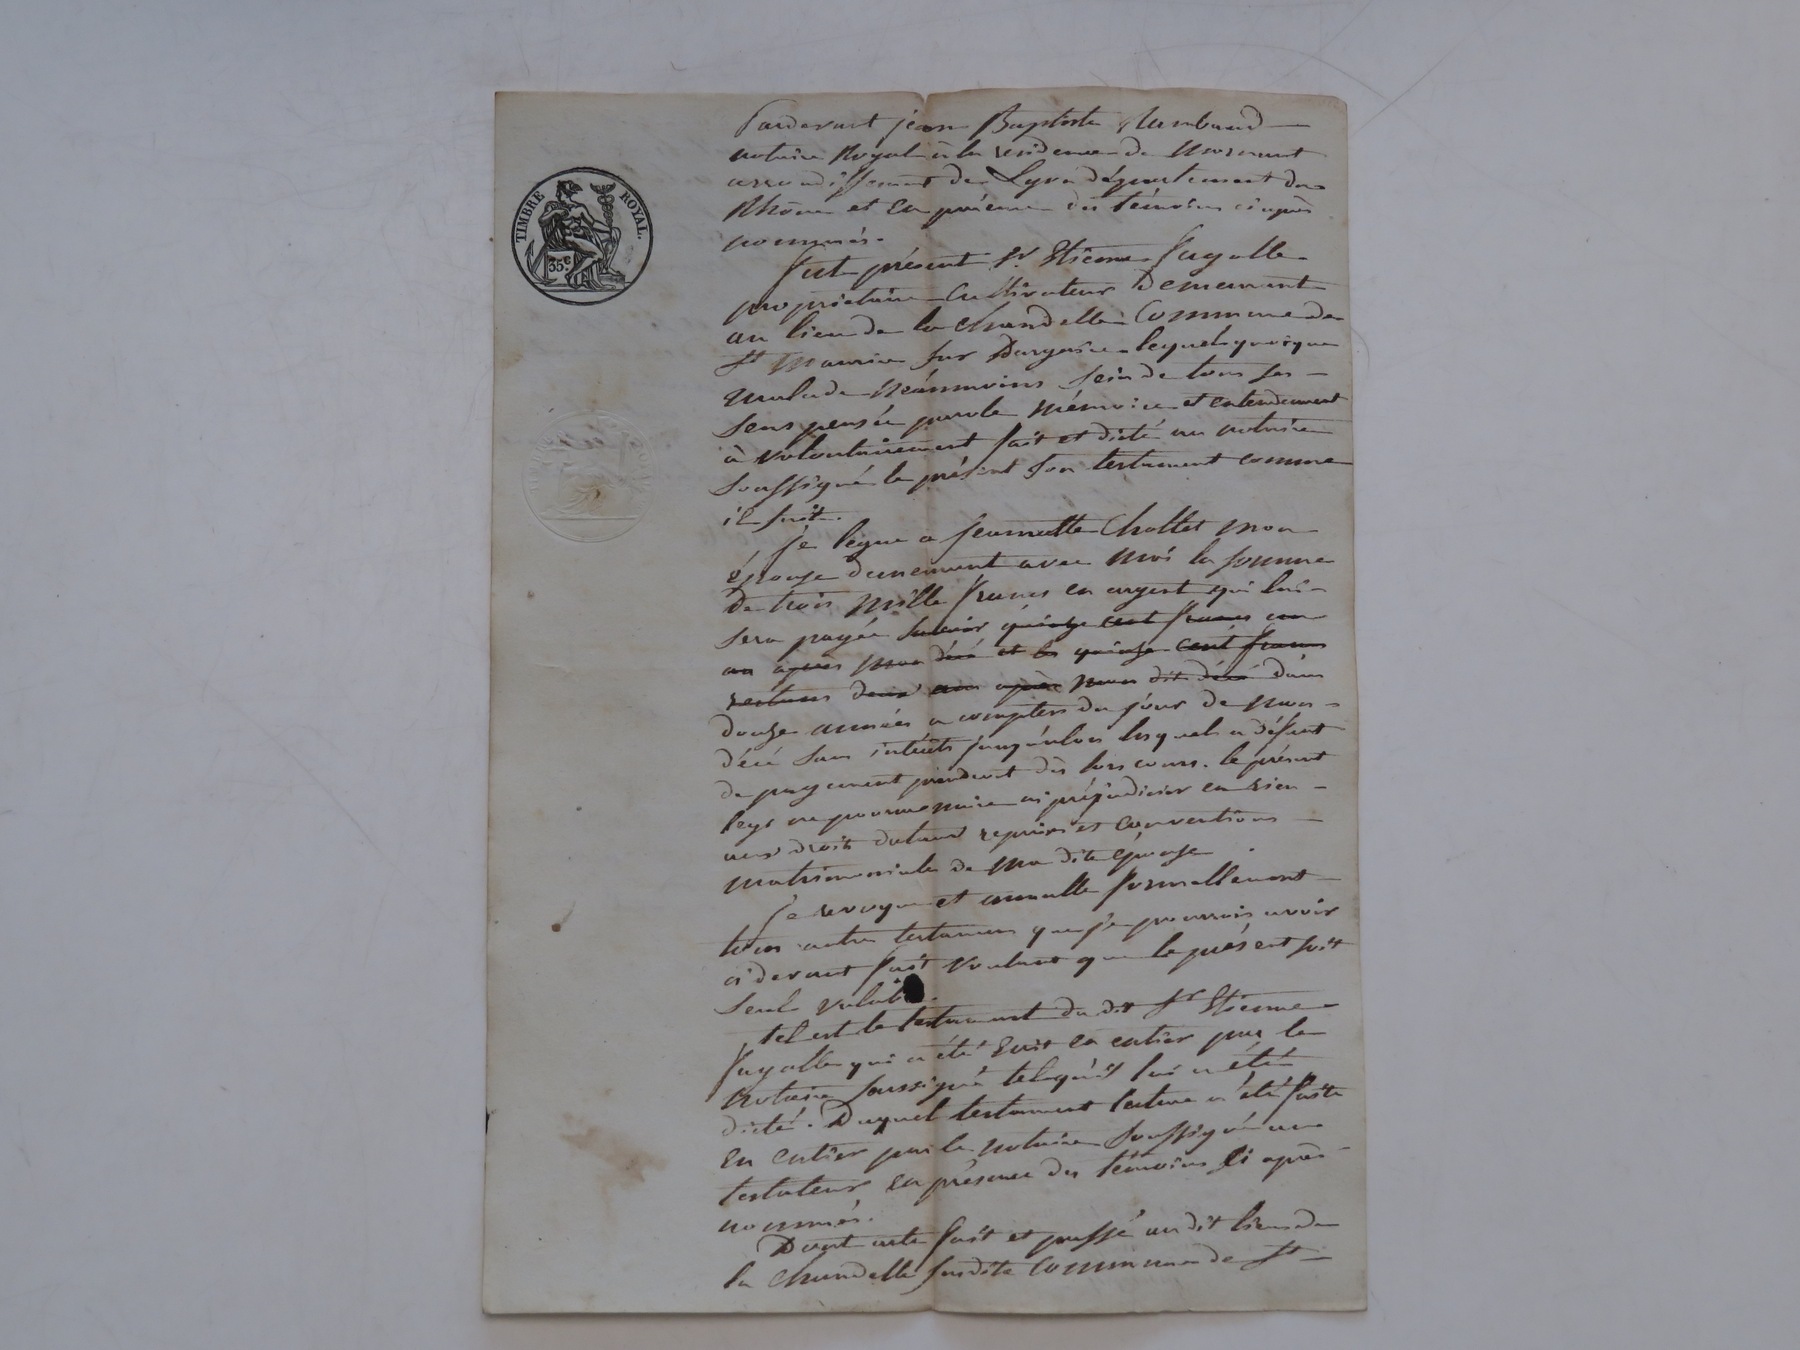 TIMBRE ROYAL.
35c.
Pardevant jean Baptiste
notaire Royal à la residence de Mornant
arrondissement de Lyon département du
Rhône et en présence des témoins ci après
nommés.
fut présent Sr. Etienne fayolle
propriétaire Cultivateur Demeurant
au lieu de la Chandelle Commune de
St Maurice sur Dargoire lequel quoique
malade néanmoins sein de tous ses
sens pensée parole mémoire et entendement
à volontairement fait et dicté au notaire
soussigné le présent son testament comme
il suit.
je legue a jeannette Chollet mon
épouse demeurant avec moi la somme
De trois mille francs en argent qui lui
sera payée savoir quinze cent francs un
an après mon décé et les quinze cent francs
restans deux ans après mon dit décé dans
douze années a compter du jour de mon
décé sans intérêts jusqu'alors lesquels a défaut
de payement prendront dès lors cours. le présent
legs ne pourra nuire ni préjudicier en rien
aux droits dotaux reprises et conventions
matrimoniales de ma dite épouse
je revoque et annulle formellement
tous autres testamens que je pourrois avoir
ci devant fait voulant que le présent soit
seul valable.
tel est le testament du dit Sr Etienne
fayolle qui a été écrit en entier par le
Notaire soussigné tel qu'il lui a été
dicté. Duquel testament lecture a été faite
en entier par le notaire soussigné au
testateur en présence des témoins ci après
nommés.
Dont acte fait et passé au dit lieu de
la Chandelle susdite commune de St